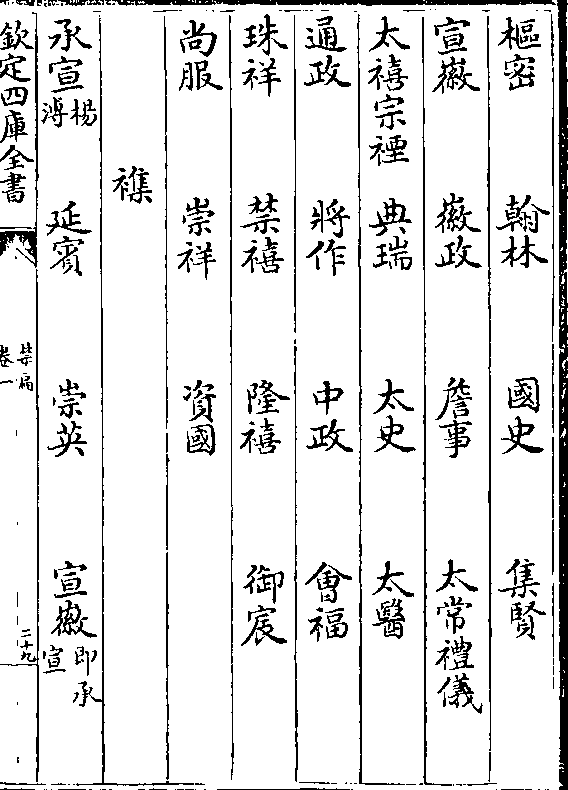 樞密 翰林 國史 集賢
宣徽 徽政 詹事 太常禮儀
太禧宗禋 典瑞 太史 太醫
通政 將作 中政 會福
珠祥 禁禧 隆禧 御宸
尚服 崇祥 資國
襍
承宣楊溥 延賓 崇英 宣徽即承宣
欽定四庫全書 禁扁 卷一 二十九